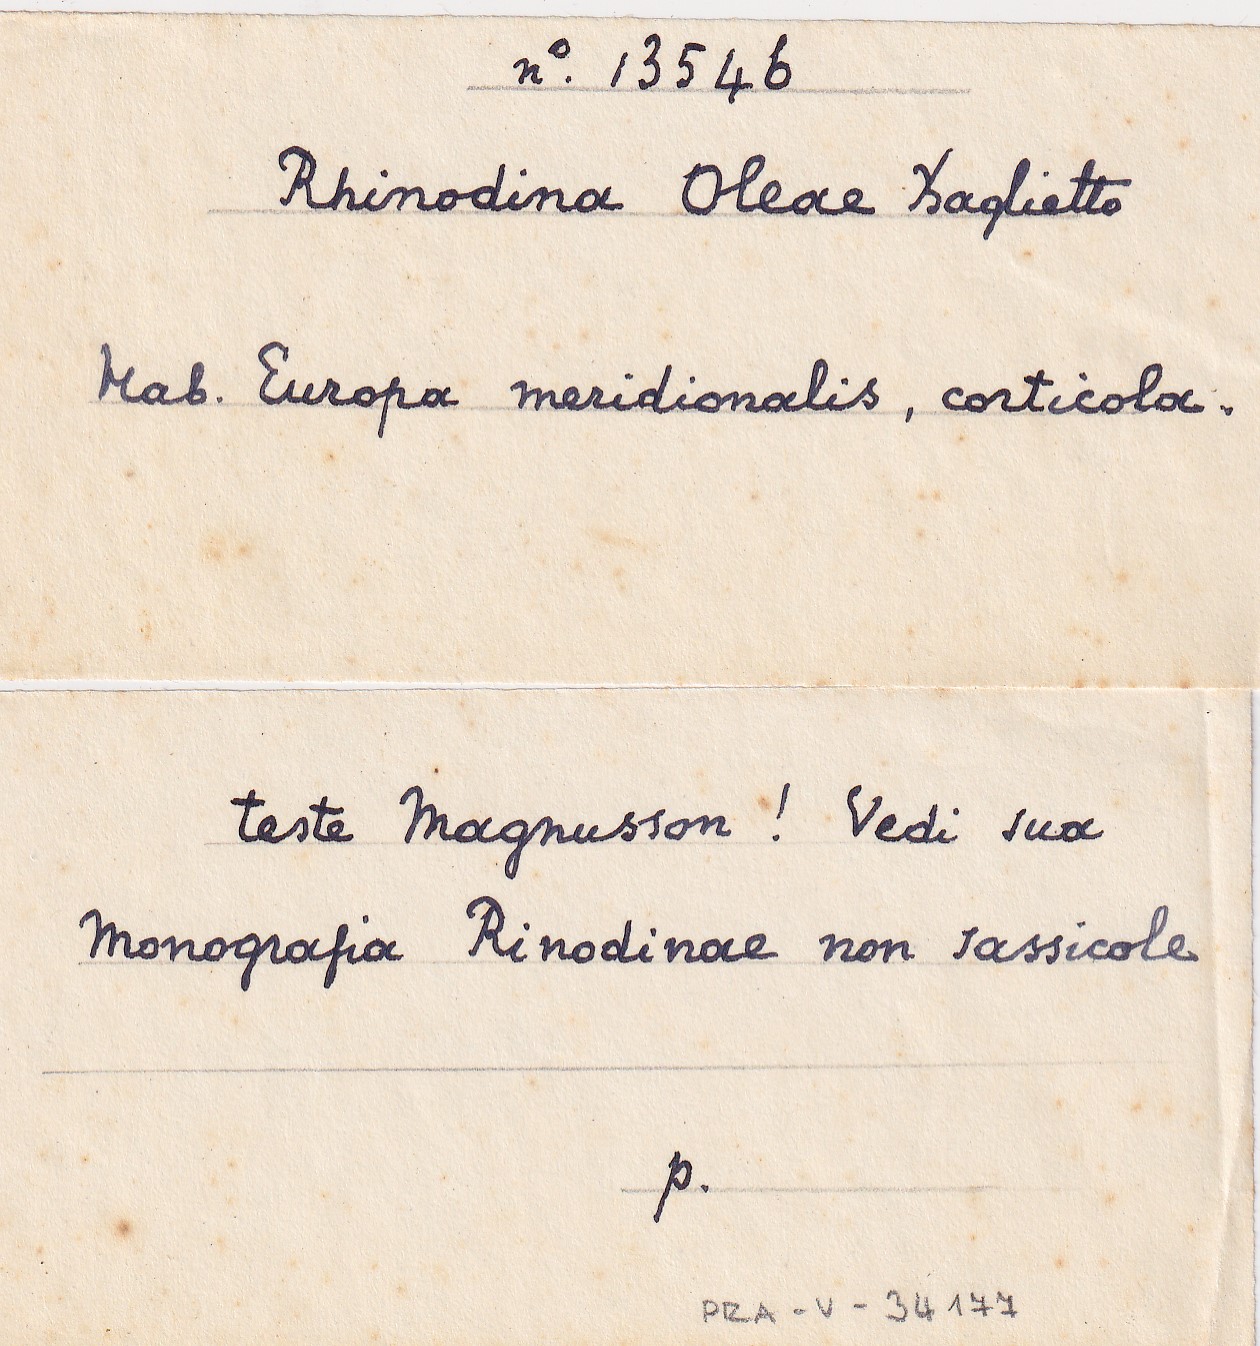 nº. 13546
Rhinodina Oleae Baglietto
Hab. Europa meridionalis, corticola.
teste Magnusson! Vedi sua
Monografia Rinodinae non sassicole
p.
PRA-V-34177